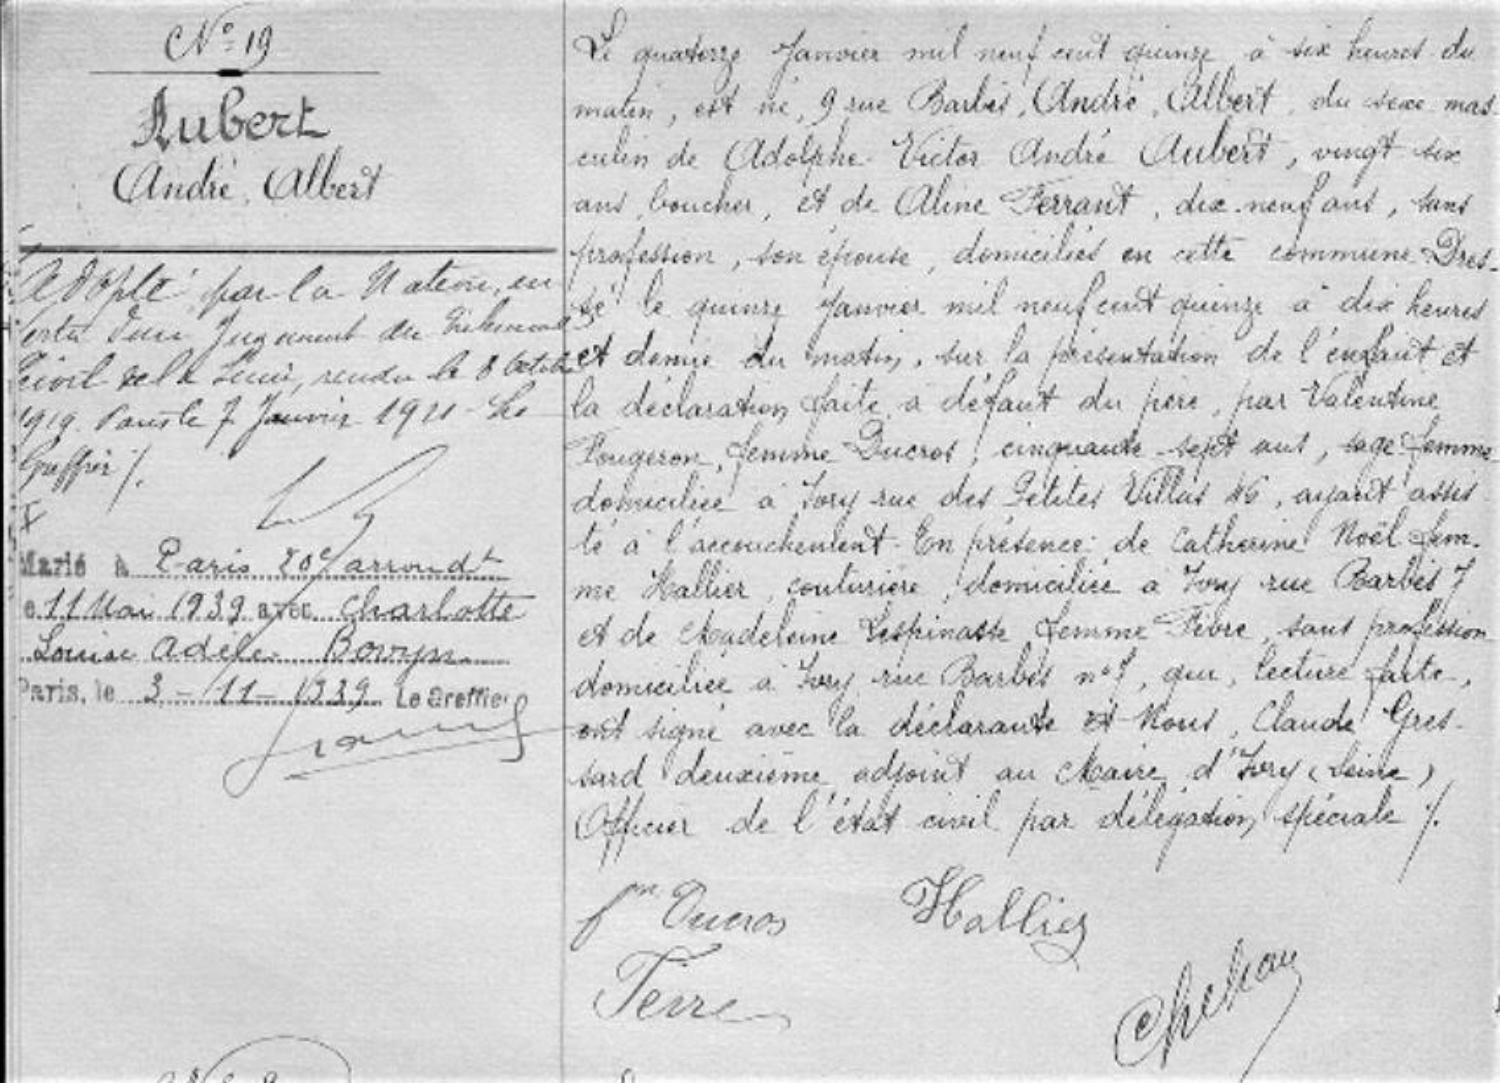 N° 19
Aubert
André, Albert
Adopté par la Nation, en
vertu d'un Jugement du Tribunal
Civil de la Seine, rendu le 8 Octobre
1919. Paris le 7 Janvier 1921. Le
Greffier /.
Marié à Paris 20e arrondt
le 11 Mai 1939 avec Charlotte
Louise Adèle
Paris, le 3 - 11 - 1939 Le Greffier
Le quatorze Janvier mil neuf cent quinze à six heures du
matin, est né, 9 rue Barbès, André, Albert, du sexe mas-
culin de Adolphe Victor André Aubert, vingt six
ans, boucher, et de Aline Ferrant, dix-neuf ans, sans
profession, son épouse, domiciliés en cette commune. Dres-
sé le quinze Janvier mil neuf cent quinze à dix heures
et demie du matin, sur la présentation de l'enfant et
la déclaration faite à défaut du père, par Valentine
Fougeron, femme Ducros, cinquante-sept ans, sage-femme
domiciliée à Ivry rue des Petites Villas 46, ayant assis-
té à l'accouchement. En présence: de Catherine Noël fem-
me Hallier, couturière, domiciliée à Ivry rue Barbès 7
et de Madeleine Lespinasse femme Fèvre, sans profession
domiciliée à Ivry rue Barbès n° 7, qui, lecture faite,
ont signé avec la déclarante et Nous, Claude Gres-
sard deuxième adjoint au Maire d'Ivry (Seine)
Officier de l'état civil par délégation spéciale /.
fme Ducros Hallier